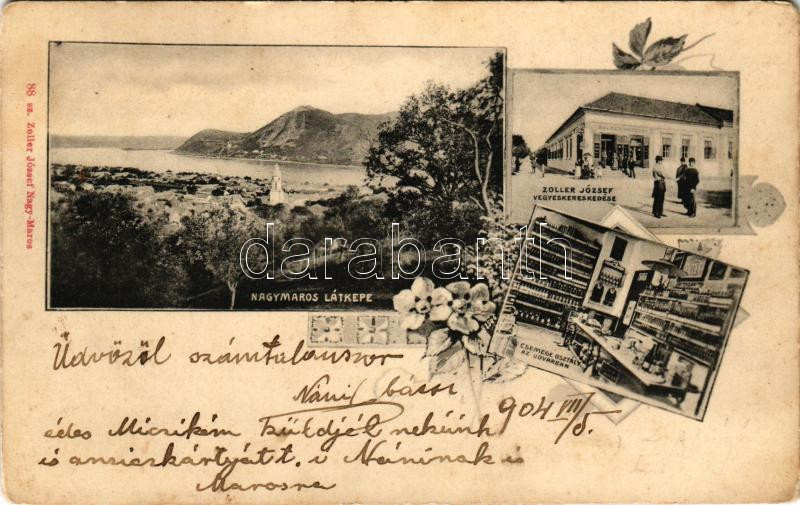 88 sz. Zoller József Nagy-Maros
NAGYMAROS LÁTKÉPE
ZOLLER JÓZSEF
VEGYESKERESKEDÉSE
CSEMEGE OSZTÁLY
AZ UDVARBAN
darabanth
Üdvözöl számtalanszor
Náni bácsi
904 VII/5.
édes Miczikém küldjél nekünk
is ansiczkártyátt. i Náninak is
Marosra